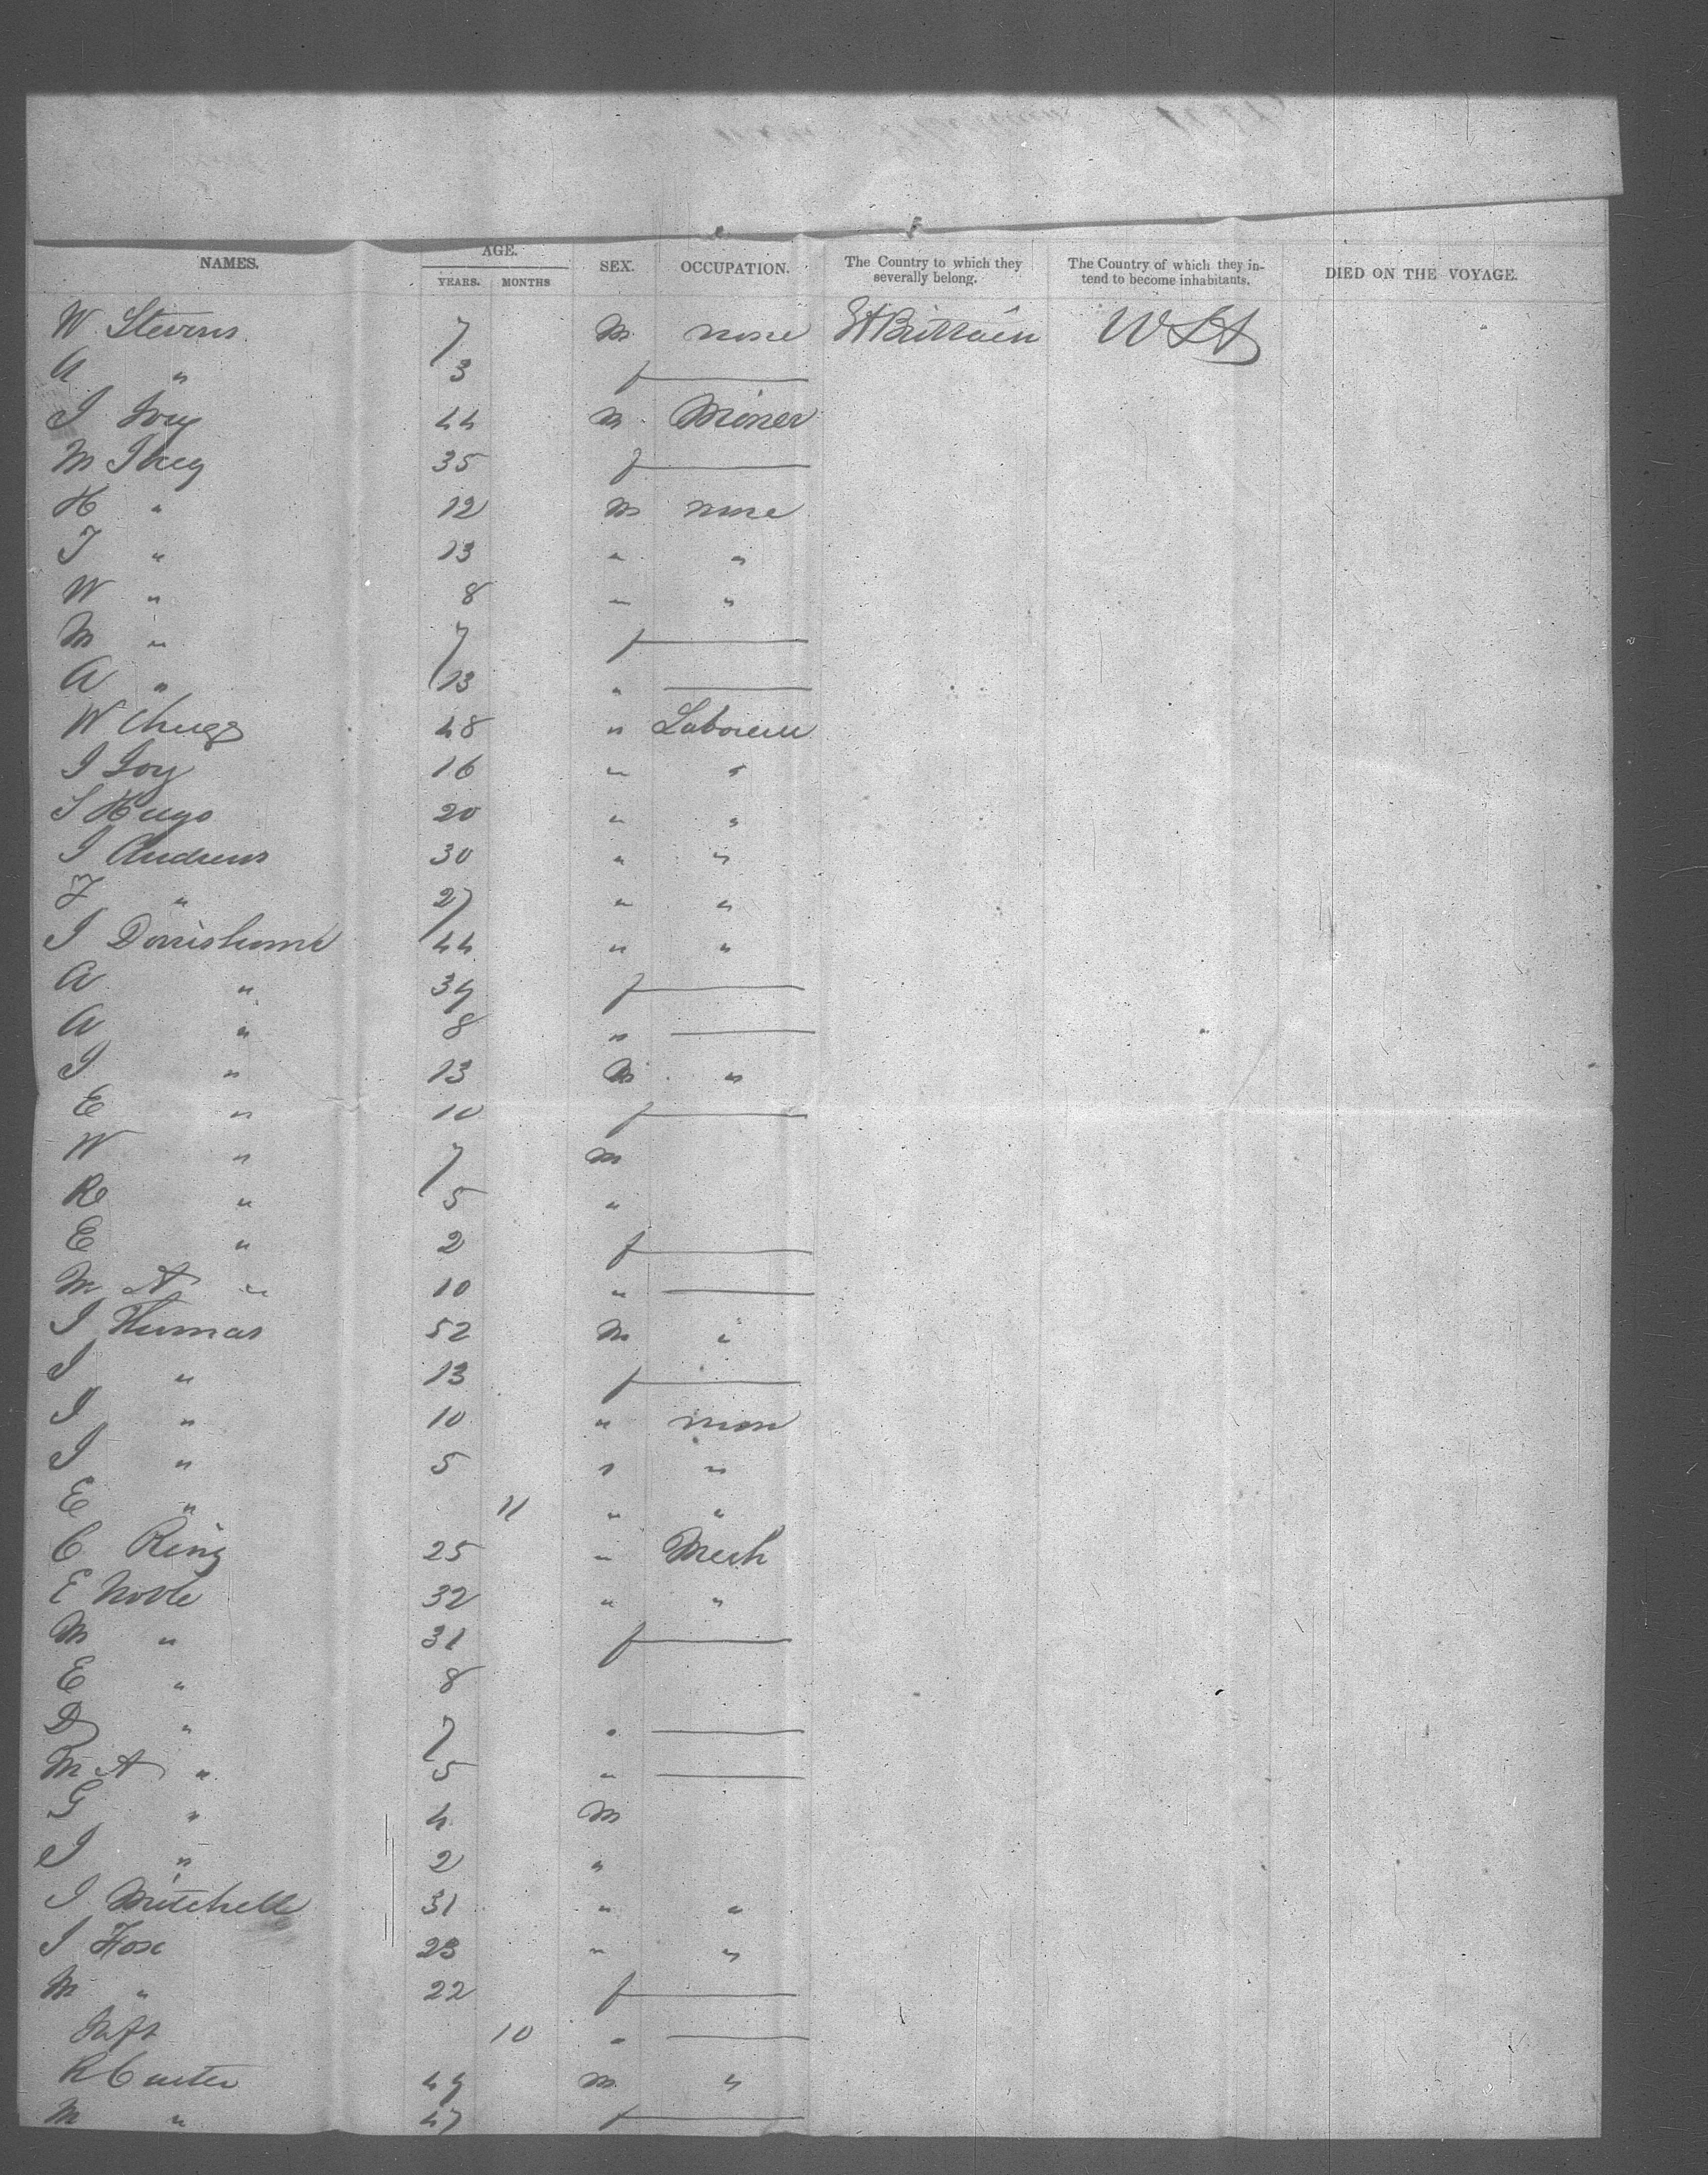 NAMES. AGE. YEARS. MONTHS SEX. OCCUPATION. The Country to which they severally belong. The Country of which they intend to become inhabitants. DIED ON THE VOYAGE.
W Stevens 7 M none Gt Brittain USA
A " 3 f
I Ivey 44 M Miner
M Ivey 35 f
H " 12 M none
T " 13 " "
W " 8 " "
M " 7 f
A " 13 "
W Chugg 48 " Labourer
I Joy 16 " "
S Hugo 20 " "
I Andrews 30 " "
F " 27 " "
I 44 " "
A " 39 f
A " 8 "
I " 13 M "
E " 10 f
W " 7 M
R " 5 "
E " 2 f
M A " 10 "
I Thomas 52 M "
I " 13 f
I " 10 " none
I " 5 " "
E " 11 " "
C Ring 25 " Mech
E Noble 32 " "
M " 31 f
E " 8
D " 7 "
M A " 5 "
G " 4 M
I " 2 "
I Mitchell 31 " "
I 23 " "
M " 22 f
Inft 10 "
R Carter 49 M "
M " 47 f